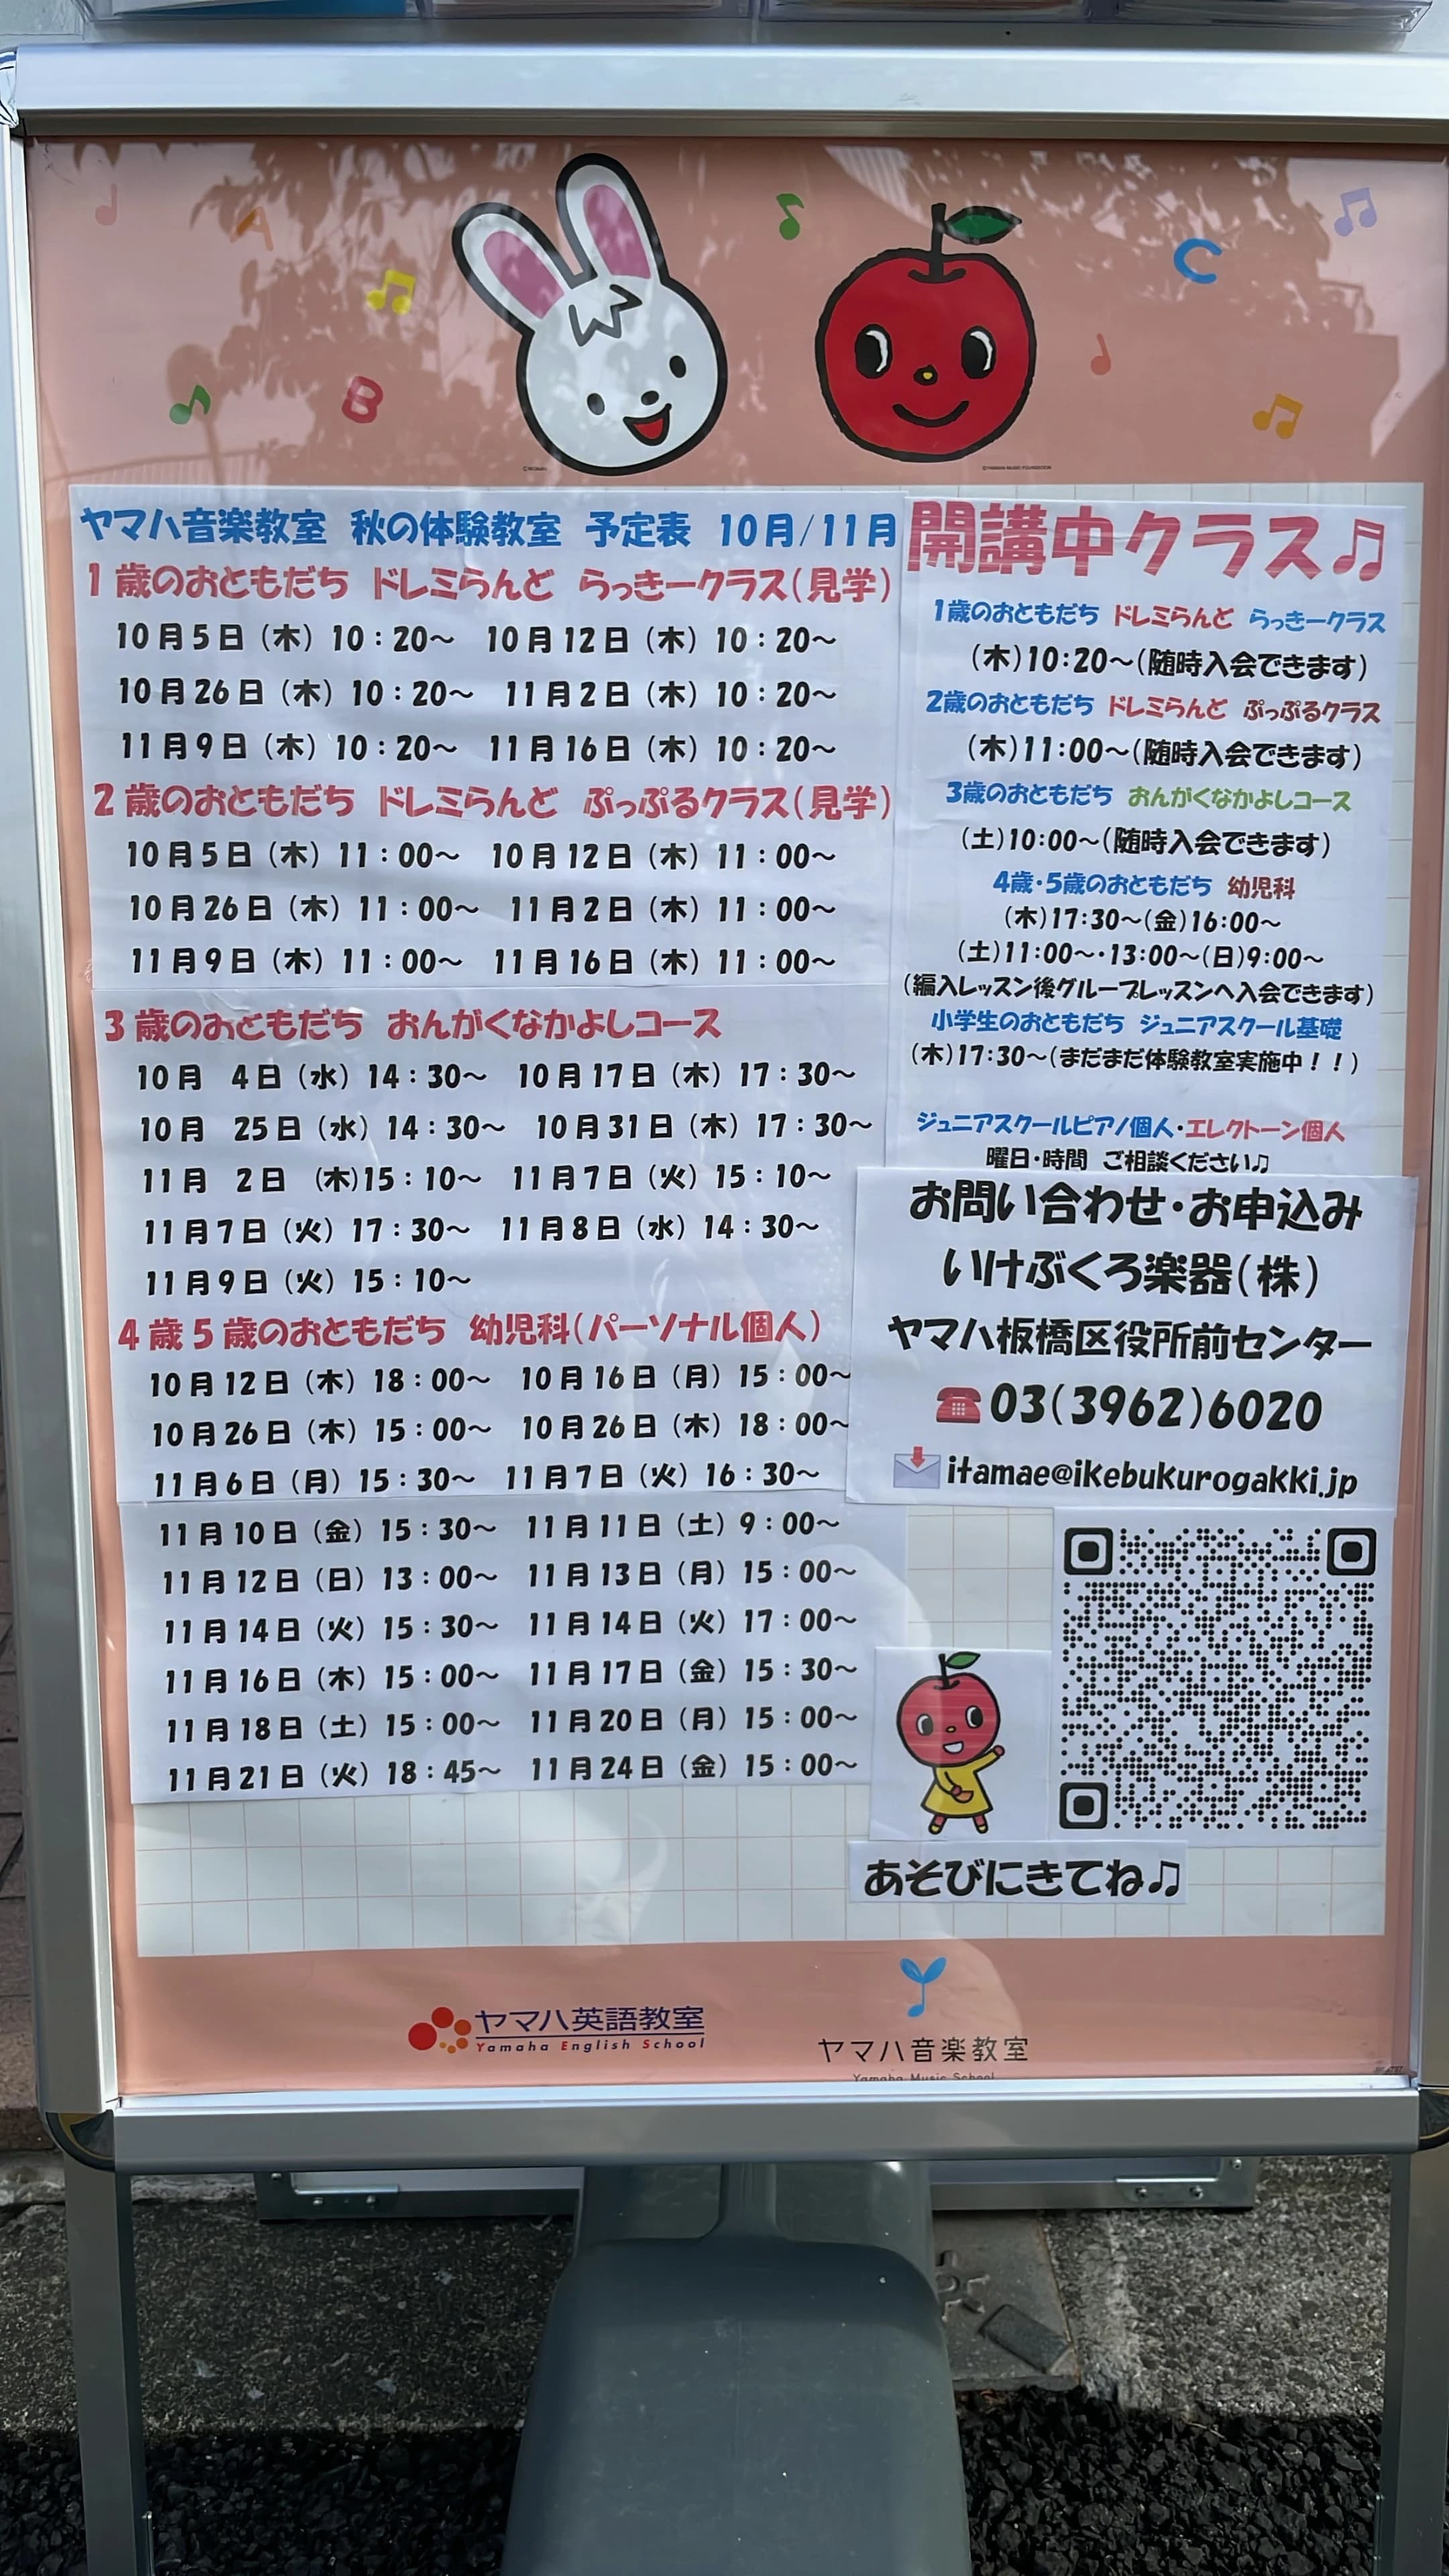 A
B
C
ヤマハ音楽教室 秋の体験教室 予定表 10月/11月
1歳のおともだち ドレミらんど らっきークラス(見学)
10月5日(木)10:20~ 10月12日(木)10:20~
10月26日(木)10:20~ 11月2日(木)10:20~
11月9日(木)10:20~ 11月16日(木)10:20~
2歳のおともだち ドレミらんど ぷっぷるクラス(見学)
10月5日(木)11:00~ 10月12日(木)11:00~
10月26日(木)11:00~ 11月2日(木)11:00~
11月9日(木)11:00~ 11月16日(木)11:00~
3歳のおともだち おんがくなかよしコース
10月 4日(水)14:30~ 10月17日(木)17:30~
10月 25日(水)14:30~ 10月31日(木)17:30~
11月 2日 (木)15:10~ 11月7日(火)15:10~
11月7日(火)17:30~ 11月8日(水)14:30~
11月9日(火)15:10~
4歳5歳のおともだち 幼児科(パーソナル個人)
10月12日(木)18:00~ 10月16日(月)15:00~
10月26日(木)15:00~ 10月26日(木)18:00~
11月6日(月)15:30~ 11月7日(火)16:30~
11月10日(金)15:30~ 11月11日(土)9:00~
11月12日(日)13:00~ 11月13日(月)15:00~
11月14日(火)15:30~ 11月14日(火)17:00~
11月16日(木)15:00~ 11月17日(金)15:30~
11月18日(土)15:00~ 11月20日(月)15:00~
11月21日(火)18:45~ 11月24日(金)15:00~
開講中クラス♫
1歳のおともだち ドレミらんど らっきークラス
(木)10:20~(随時入会できます)
2歳のおともだち ドレミらんど ぷっぷるクラス
(木)11:00~(随時入会できます)
3歳のおともだち おんがくなかよしコース
(土)10:00~(随時入会できます)
4歳・5歳のおともだち 幼児科
(木)17:30~(金)16:00~
(土)11:00~・13:00~(日)9:00~
(編入レッスン後グループレッスンへ入会できます)
小学生のおともだち ジュニアスクール基礎
(木)17:30~(まだまだ体験教室実施中!!)
ジュニアスクールピアノ個人・エレクトーン個人
曜日・時間 ご相談ください♫
お問い合わせ・お申込み
いけぶくろ楽器(株)
ヤマハ板橋区役所前センター
☎03(3962)6020
itamae@ikebukurogakki.jp
あそびにきてね♫
ヤマハ英語教室
Yamaha English School
ヤマハ音楽教室
Yamaha Music School